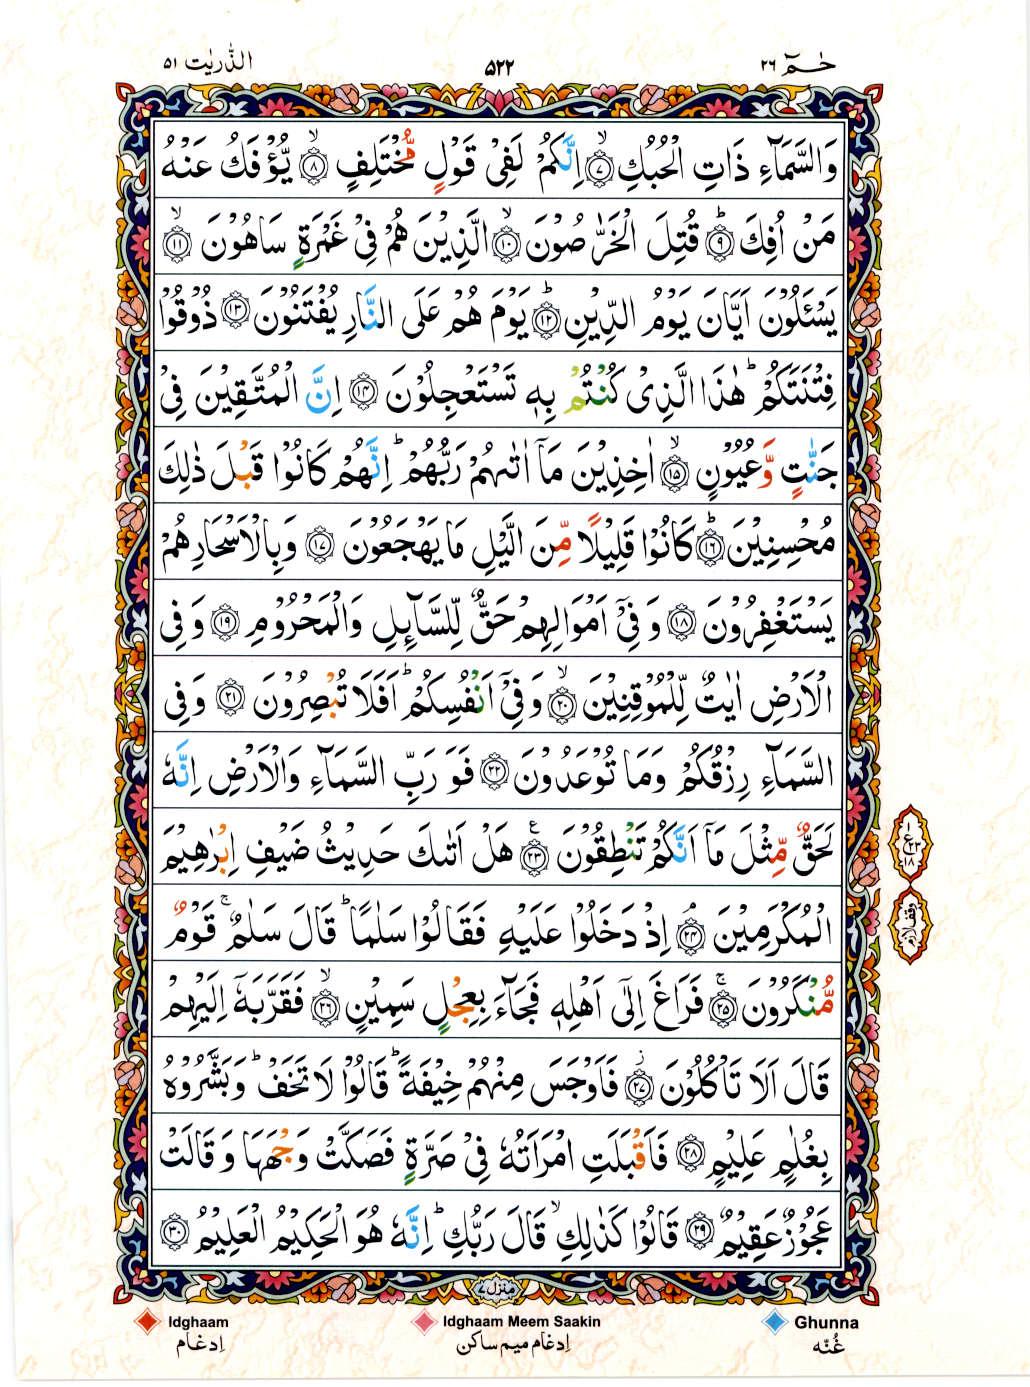 حٰمٓ ٢٦
۵۲۲
الذّٰریٰت ۵۱
وَالسَّمَآءِ ذَاتِ الْحُبُكِ ۙ﴿۷﴾ اِنَّكُمْ لَفِیْ قَوْلٍ مُّخْتَلِفٍ ۙ﴿۸﴾ یُّؤْفَكُ عَنْهُ
مَنْ اُفِكَ ؕ﴿۹﴾ قُتِلَ الْخَرّٰصُوْنَ ۙ﴿۱۰﴾ الَّذِیْنَ هُمْ فِیْ غَمْرَةٍ سَاهُوْنَ ۙ﴿۱۱﴾
یَسْـَٔلُوْنَ اَیَّانَ یَوْمُ الدِّیْنِ ؕ﴿۱۲﴾ یَوْمَ هُمْ عَلَی النَّارِ یُفْتَنُوْنَ ﴿۱۳﴾ ذُوْقُوْا
فِتْنَتَكُمْ ؕ هٰذَا الَّذِیْ كُنْتُمْ بِهٖ تَسْتَعْجِلُوْنَ ﴿۱۴﴾ اِنَّ الْمُتَّقِیْنَ فِیْ
جَنّٰتٍ وَّعُیُوْنٍ ۙ﴿۱۵﴾ اٰخِذِیْنَ مَاۤ اٰتٰىهُمْ رَبُّهُمْ ؕ اِنَّهُمْ كَانُوْا قَبْلَ ذٰلِكَ
مُحْسِنِیْنَ ؕ﴿۱۶﴾ كَانُوْا قَلِیْلًا مِّنَ الَّیْلِ مَا یَهْجَعُوْنَ ﴿۱۷﴾ وَبِالْاَسْحَارِ هُمْ
یَسْتَغْفِرُوْنَ ﴿۱۸﴾ وَفِیْۤ اَمْوَالِهِمْ حَقٌّ لِّلسَّآىِٕلِ وَالْمَحْرُوْمِ ﴿۱۹﴾ وَفِی
الْاَرْضِ اٰیٰتٌ لِّلْمُوْقِنِیْنَ ۙ﴿۲۰﴾ وَفِیْۤ اَنْفُسِكُمْ ؕ اَفَلَا تُبْصِرُوْنَ ﴿۲۱﴾ وَفِی
السَّمَآءِ رِزْقُكُمْ وَمَا تُوْعَدُوْنَ ﴿۲۲﴾ فَوَرَبِّ السَّمَآءِ وَالْاَرْضِ اِنَّهٗ
لَحَقٌّ مِّثْلَ مَاۤ اَنَّكُمْ تَنْطِقُوْنَ ﴿۲۳﴾ هَلْ اَتٰىكَ حَدِیْثُ ضَیْفِ اِبْرٰهِیْمَ
الْمُكْرَمِیْنَ ۘ﴿۲۴﴾ اِذْ دَخَلُوْا عَلَیْهِ فَقَالُوْا سَلٰمًا ؕ قَالَ سَلٰمٌ ۚ قَوْمٌ
مُّنْكَرُوْنَ ۚ﴿۲۵﴾ فَرَاغَ اِلٰۤی اَهْلِهٖ فَجَآءَ بِعِجْلٍ سَمِیْنٍ ۙ﴿۲۶﴾ فَقَرَّبَهٗۤ اِلَیْهِمْ
قَالَ اَلَا تَاْكُلُوْنَ ؗ﴿۲۷﴾ فَاَوْجَسَ مِنْهُمْ خِیْفَةً ؕ قَالُوْا لَا تَخَفْ ؕ وَبَشَّرُوْهُ
بِغُلٰمٍ عَلِیْمٍ ﴿۲۸﴾ فَاَقْبَلَتِ امْرَاَتُهٗ فِیْ صَرَّةٍ فَصَكَّتْ وَجْهَهَا وَقَالَتْ
عَجُوْزٌ عَقِیْمٌ ﴿۲۹﴾ قَالُوْا كَذٰلِكِ ۙ قَالَ رَبُّكِ ؕ اِنَّهٗ هُوَ الْحَكِیْمُ الْعَلِیْمُ ﴿۳۰﴾
۱
ع ۲۳
۱۸
وقف لازم
منزل ۷
Idghaam
اِدغام
Idghaam Meem Saakin
اِدغام میم ساکن
Ghunna
غُنّہ